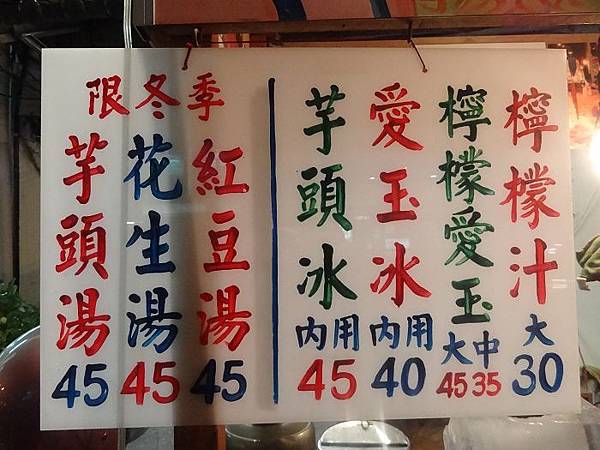 檸檬汁
大
30
檸檬愛玉
大中
45 35
愛玉冰
內用
40
芋頭冰
內用
45
限冬季
紅豆湯
45
花生湯
45
芋頭湯
45